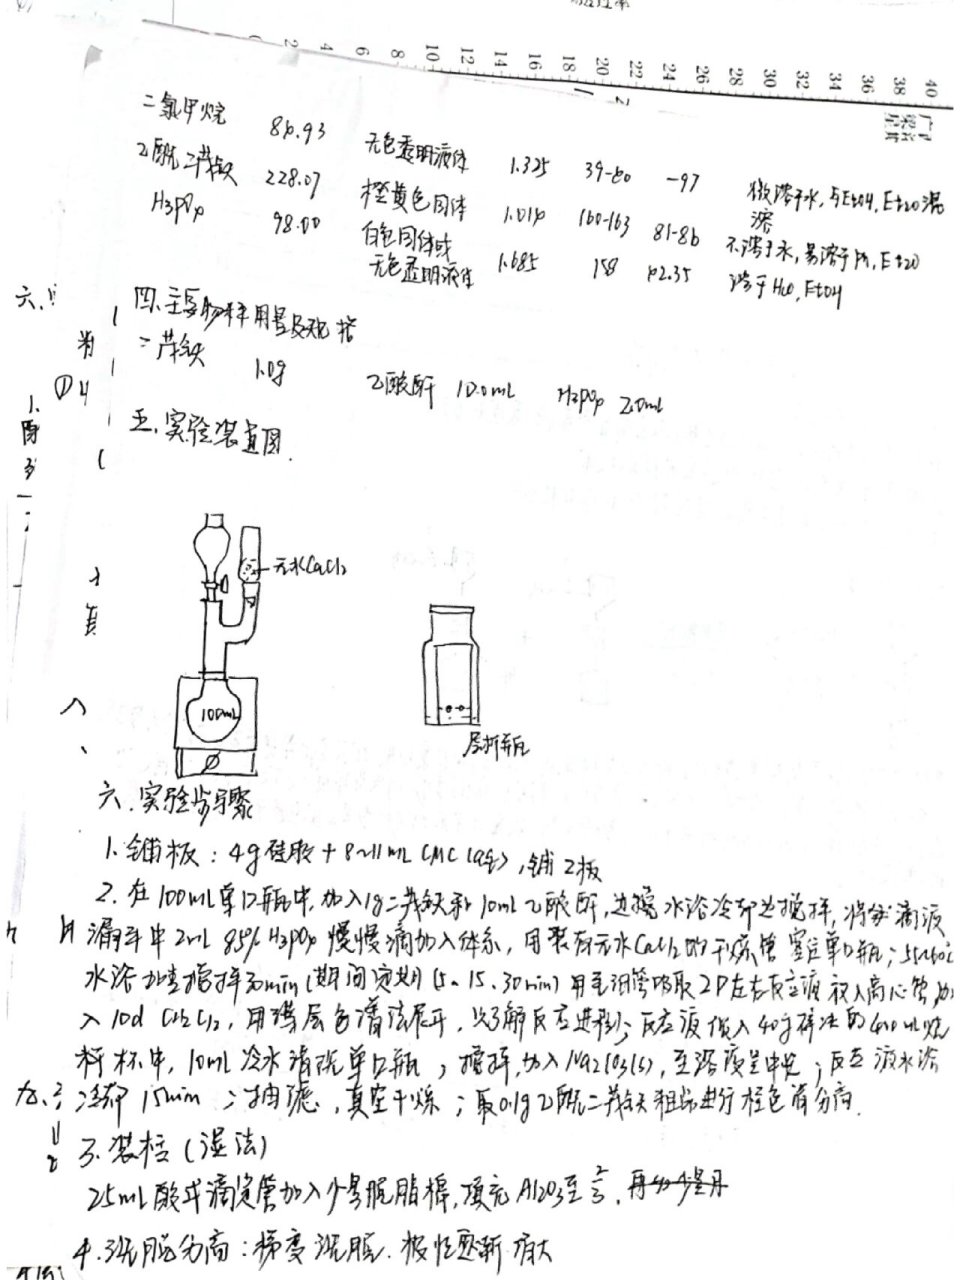 0 2 4 6 8 10 12 14 16 18 20 22 24 26 28 30 32 34 36 38 40
二氯甲烷 86.93 无色透明液体 1.325 39-40 -97 微溶于水,与EtOH,Et2O混溶
乙酰二茂铁 228.07 橙黄色固体 1.014 160-163 81-86 不溶于水,易溶于 Et2O
H3PO4 98.00 白色固体或无色透明液体 1.685 158 42.35 溶于H2O,EtOH
四.主要物料用量及规格
二茂铁 1.0g 乙酸酐 10.0mL H3PO4 2.0mL
五.实验装置图.
无水CaCl2
100mL
层析瓶
六.实验步骤
1.铺板:4g硅胶+8~11mL CMC ,铺2板
2.在100mL单口瓶中,加入1g二茂铁和10mL乙酸酐,边搅水浴冷却边搅拌,将 滴液
漏斗中2mL 85% H3PO4 慢慢滴加入体系,用装有无水CaCl2的干燥管塞住单口瓶;55~60℃
水浴加热搅拌30min(期间定期(5、15、30min)用毛细管吸取2P左右反应液放入离心管 加
入10d CH2Cl2,用薄层色谱法展开,以了解反应进程);反应液倒入40g碎冰的400mL烧
杯中,10mL冷水清洗单口瓶,搅拌,加入Na2CO3(s),至溶液呈中性;反应液水浴
冷却15min;抽滤,真空干燥;取0.1g乙酰二茂铁粗品进行柱色谱分离.
3.装柱(湿法)
25mL酸式滴定管加入少量脱脂棉,填充Al2O3至2/3,
4.洗脱分离:梯度洗脱.极性逐渐增大